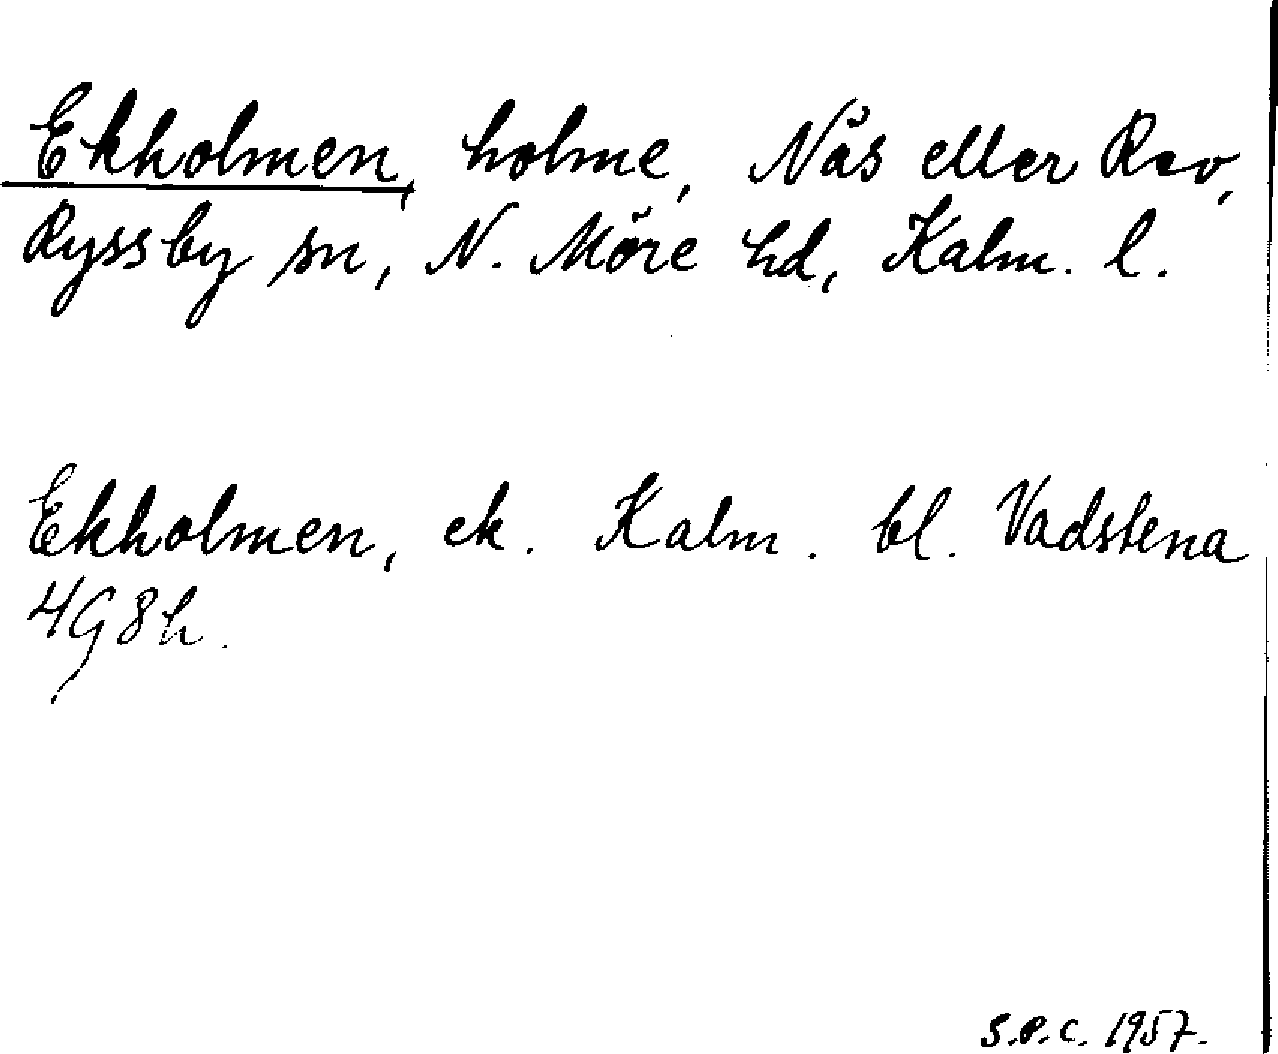 Ekholmen, holme, Näs eller Rev,
Ryssby sn, N. Möre hd, Kalm. l.
Ekholmen, ek. Kalm. bl. Vadstena
4G8h.
S.P.C. 1957.